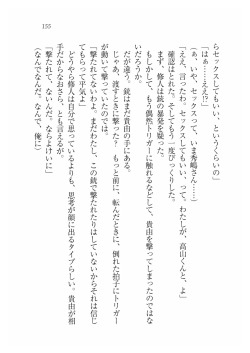 155
らセックスしてもいい、というくらいの」
「はぁ……ええ!?」
（あ、いや、セックスって、いま秀嶋さん……）
「ええ、言ったわ。セックスしてもいい、って。わたしが、高山くんと、よ」
確認はとれた。そしてもう一度びっくりした。
まず。修人は銃の暴発を疑った。
もしかして、もう偶然トリガーに触れるなどして、貴由を撃ってしまったのではな
いだろうか。
だが違う。銃はまだ貴由の手にある。
じゃあ、渡すときに撃った？　もっと前に、転んだときに、倒れた拍子にトリガー
が動いて撃っていたのでは。
「撃たれてないわよ。まだわたし、この銃で撃たれたりはしていないからそれは信じ
てもらって平気よ」
どうやら修人は自分で思っているよりも、思考が顔に出るタイプらしい。貴由が相
手だからなおさら、とも言えるが。
「撃たれて、ないんだ、ならよけいに」
（なんでなんだ、なんで、俺に）